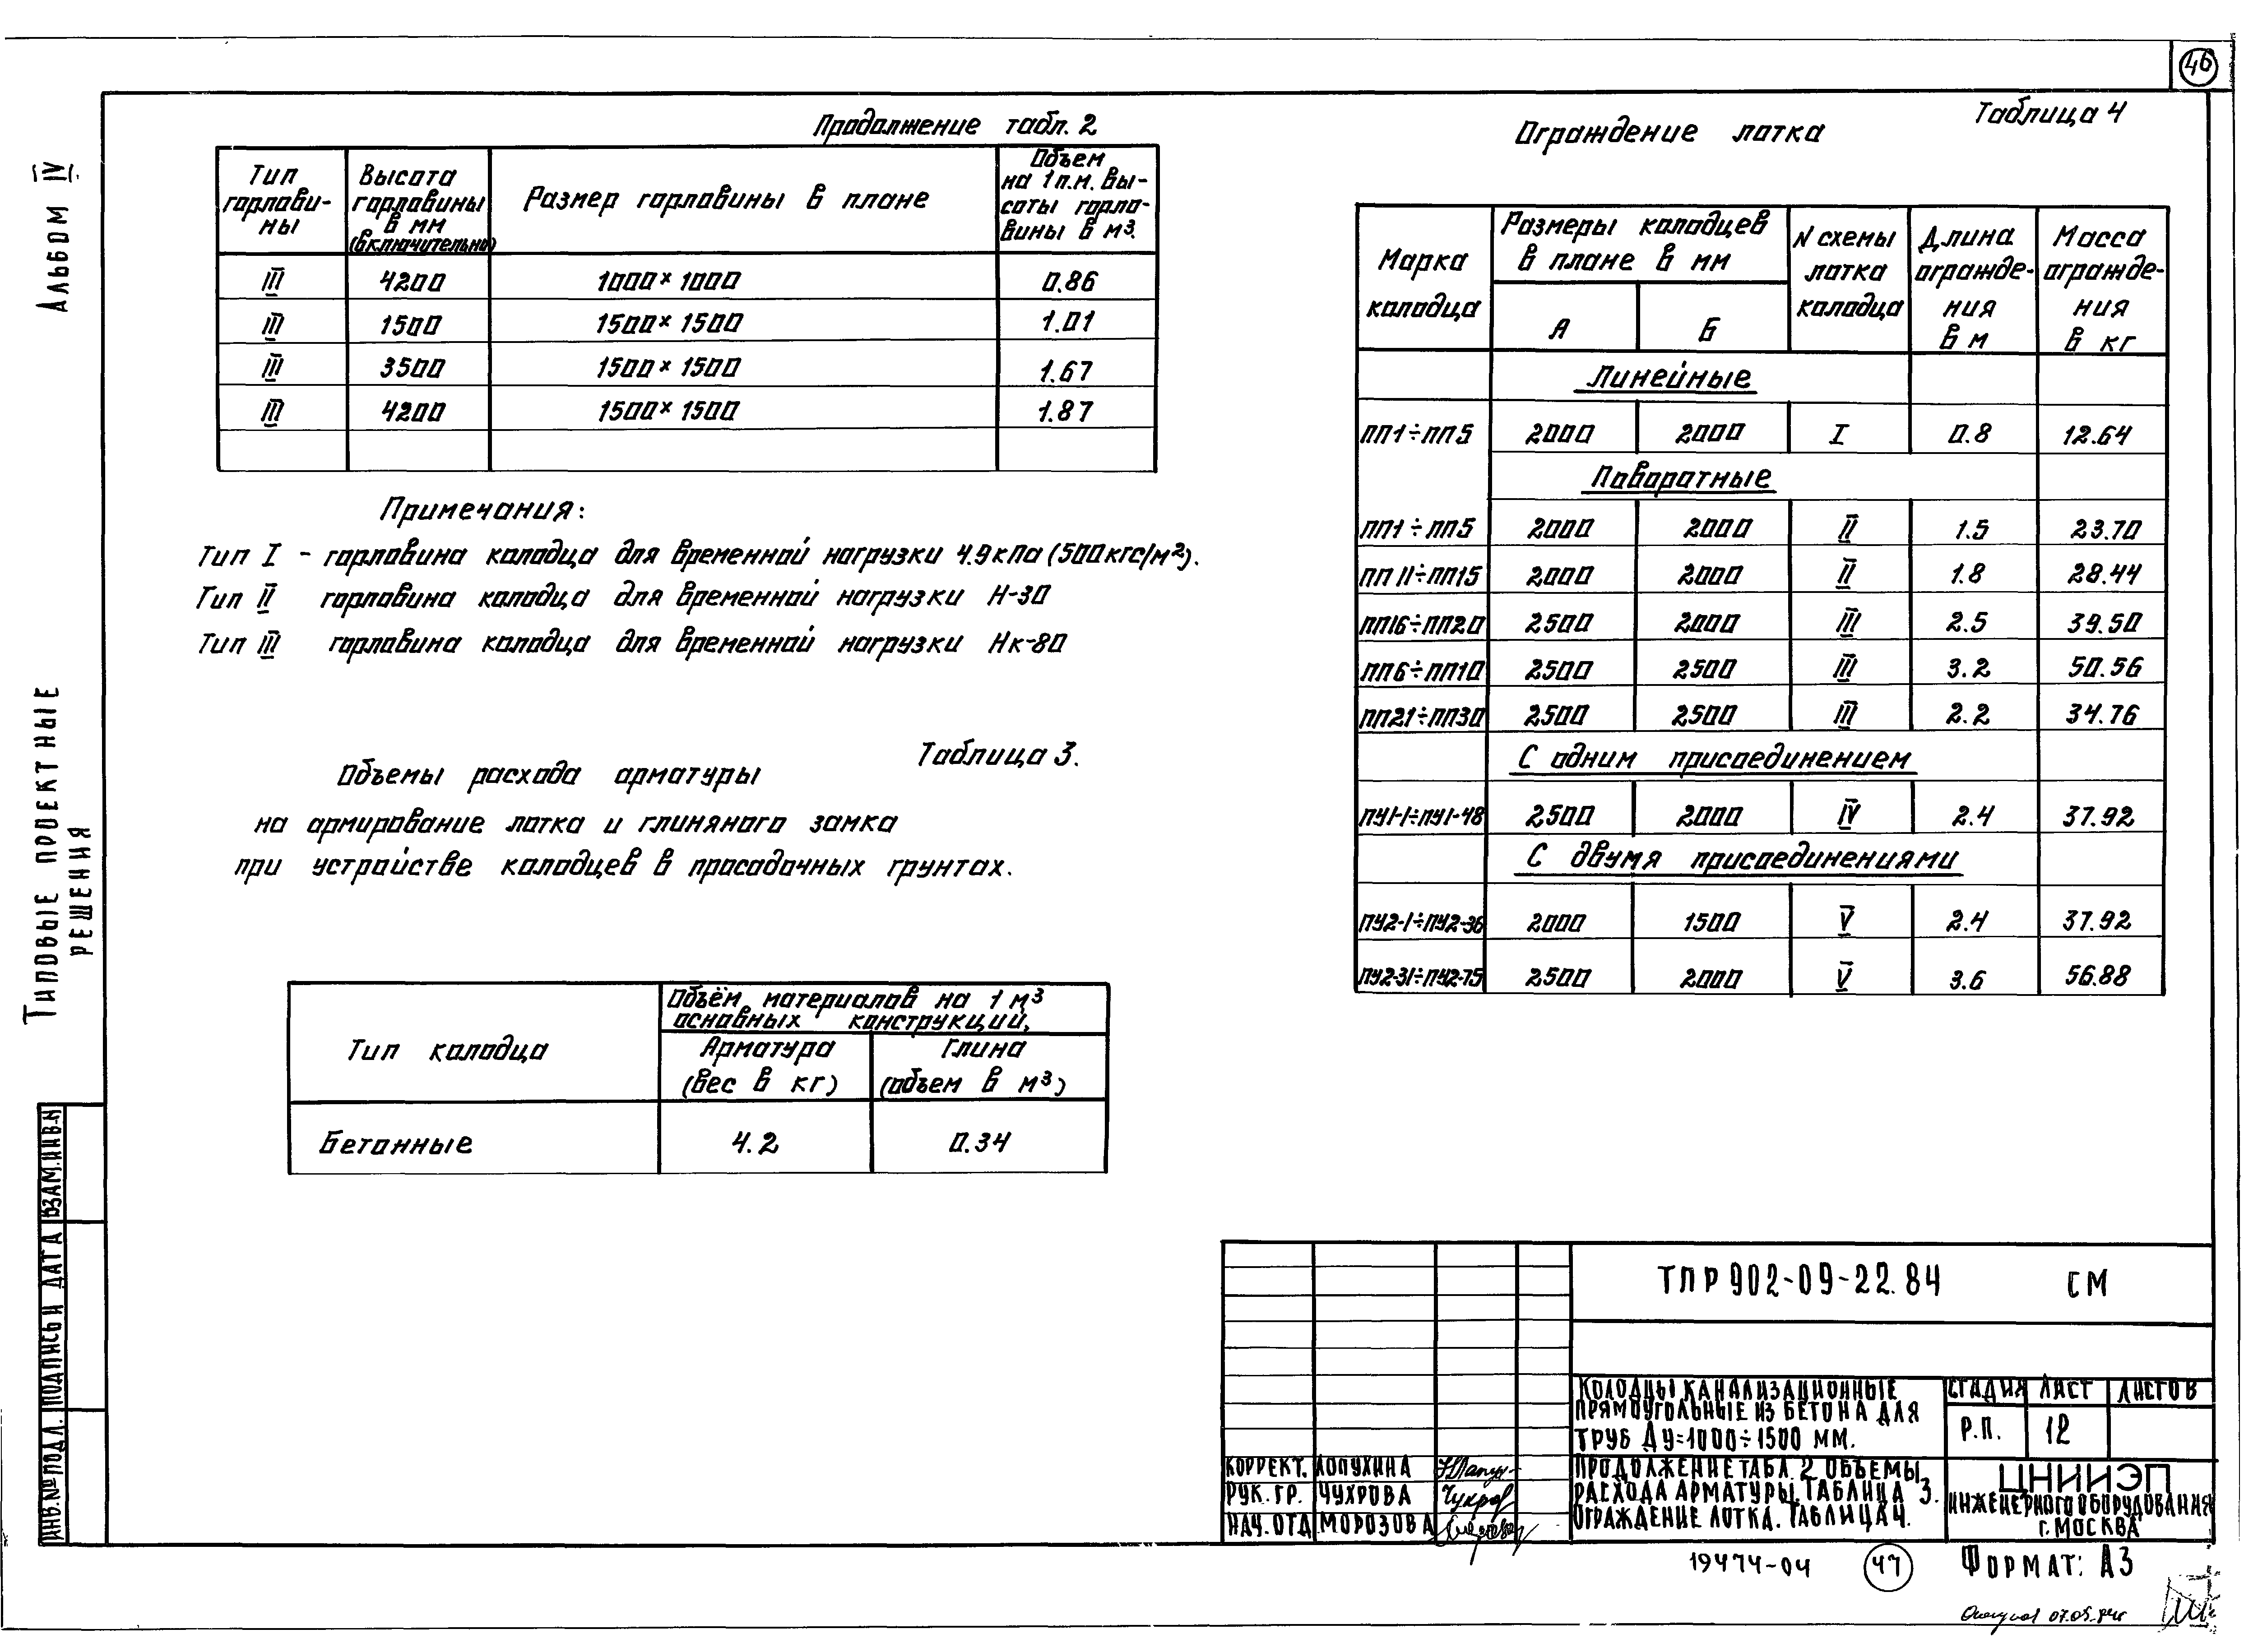 46
Альбом IV
Типовые проектные
решения
Продолжение табл. 2
Тип горлави- ны | Высота горловины в мм (включительно) | Размер горловины в плане | Объем на 1 п.м. вы- соты горло- вины в м³.
III 4200 1000×1000 0.86
III 1500 1500×1500 1.01
III 3500 1500×1500 1.67
III 4200 1500×1500 1.87
Примечания:
Тип I – горловина колодца для временной нагрузки 4.9кПа (500кгс/м²).
Тип II горловина колодца для временной нагрузки Н-30
Тип III горловина колодца для временной нагрузки Нк-80
Таблица 3.
Объемы расхода арматуры
на армирование лотка и глиняного замка
при устройстве колодцев в просадочных грунтах.
Тип колодца | Объём материалов на 1 м³ основных конструкций,
Арматура (вес в кг) | Глина (объем в м³)
Бетонные 4.2 0.34
Таблица 4
Ограждение лотка
Марка колодца | Размеры колодцев в плане в мм | N схемы лотка колодца | Длина огражде- ния в м | Масса огражде- ния в кг
А Б
Линейные
ПП1÷ПП5 2000 2000 I 0.8 12.64
Поворотные
ПП1÷ПП5 2000 2000 II 1.5 23.70
ПП11÷ПП15 2000 2000 II 1.8 28.44
ПП16÷ПП20 2500 2000 III 2.5 39.50
ПП6÷ПП10 2500 2500 III 3.2 50.56
ПП21÷ПП30 2500 2500 III 2.2 34.76
С одним присоединением
ПУ1-1÷ПУ1-48 2500 2000 IV 2.4 37.92
С двумя присоединениями
ПУ2-1÷ПУ2-36 2000 1500 V 2.4 37.92
ПУ2-31÷ПУ2-75 2500 2000 V 3.6 56.88
ИНВ.№ ПОДЛ. ПОДПИСЬ И ДАТА ВЗАМ.ИНВ.N
ТПР 902-09-22.84 СМ
КОЛОДЦЫ КАНАЛИЗАЦИОННЫЕ
ПРЯМОУГОЛЬНЫЕ ИЗ БЕТОНА ДЛЯ
ТРУБ Ду=1000÷1500 ММ.
СТАДИЯ ЛИСТ ЛИСТОВ
Р.П. 12
КОРРЕКТ. ЛОПУХИНА
РУК. ГР. ЧУХРОВА
НАЧ. ОТД МОРОЗОВА
ПРОДОЛЖЕНИЕ ТАБЛ. 2 ОБЪЕМЫ
РАСХОДА АРМАТУРЫ. ТАБЛИЦА 3.
ОГРАЖДЕНИЕ ЛОТКА. ТАБЛИЦА 4.
ЦНИИЭП
ИНЖЕНЕРНОГО ОБОРУДОВАНИЯ
Г. МОСКВА
19474-04
47
ФОРМАТ: А3